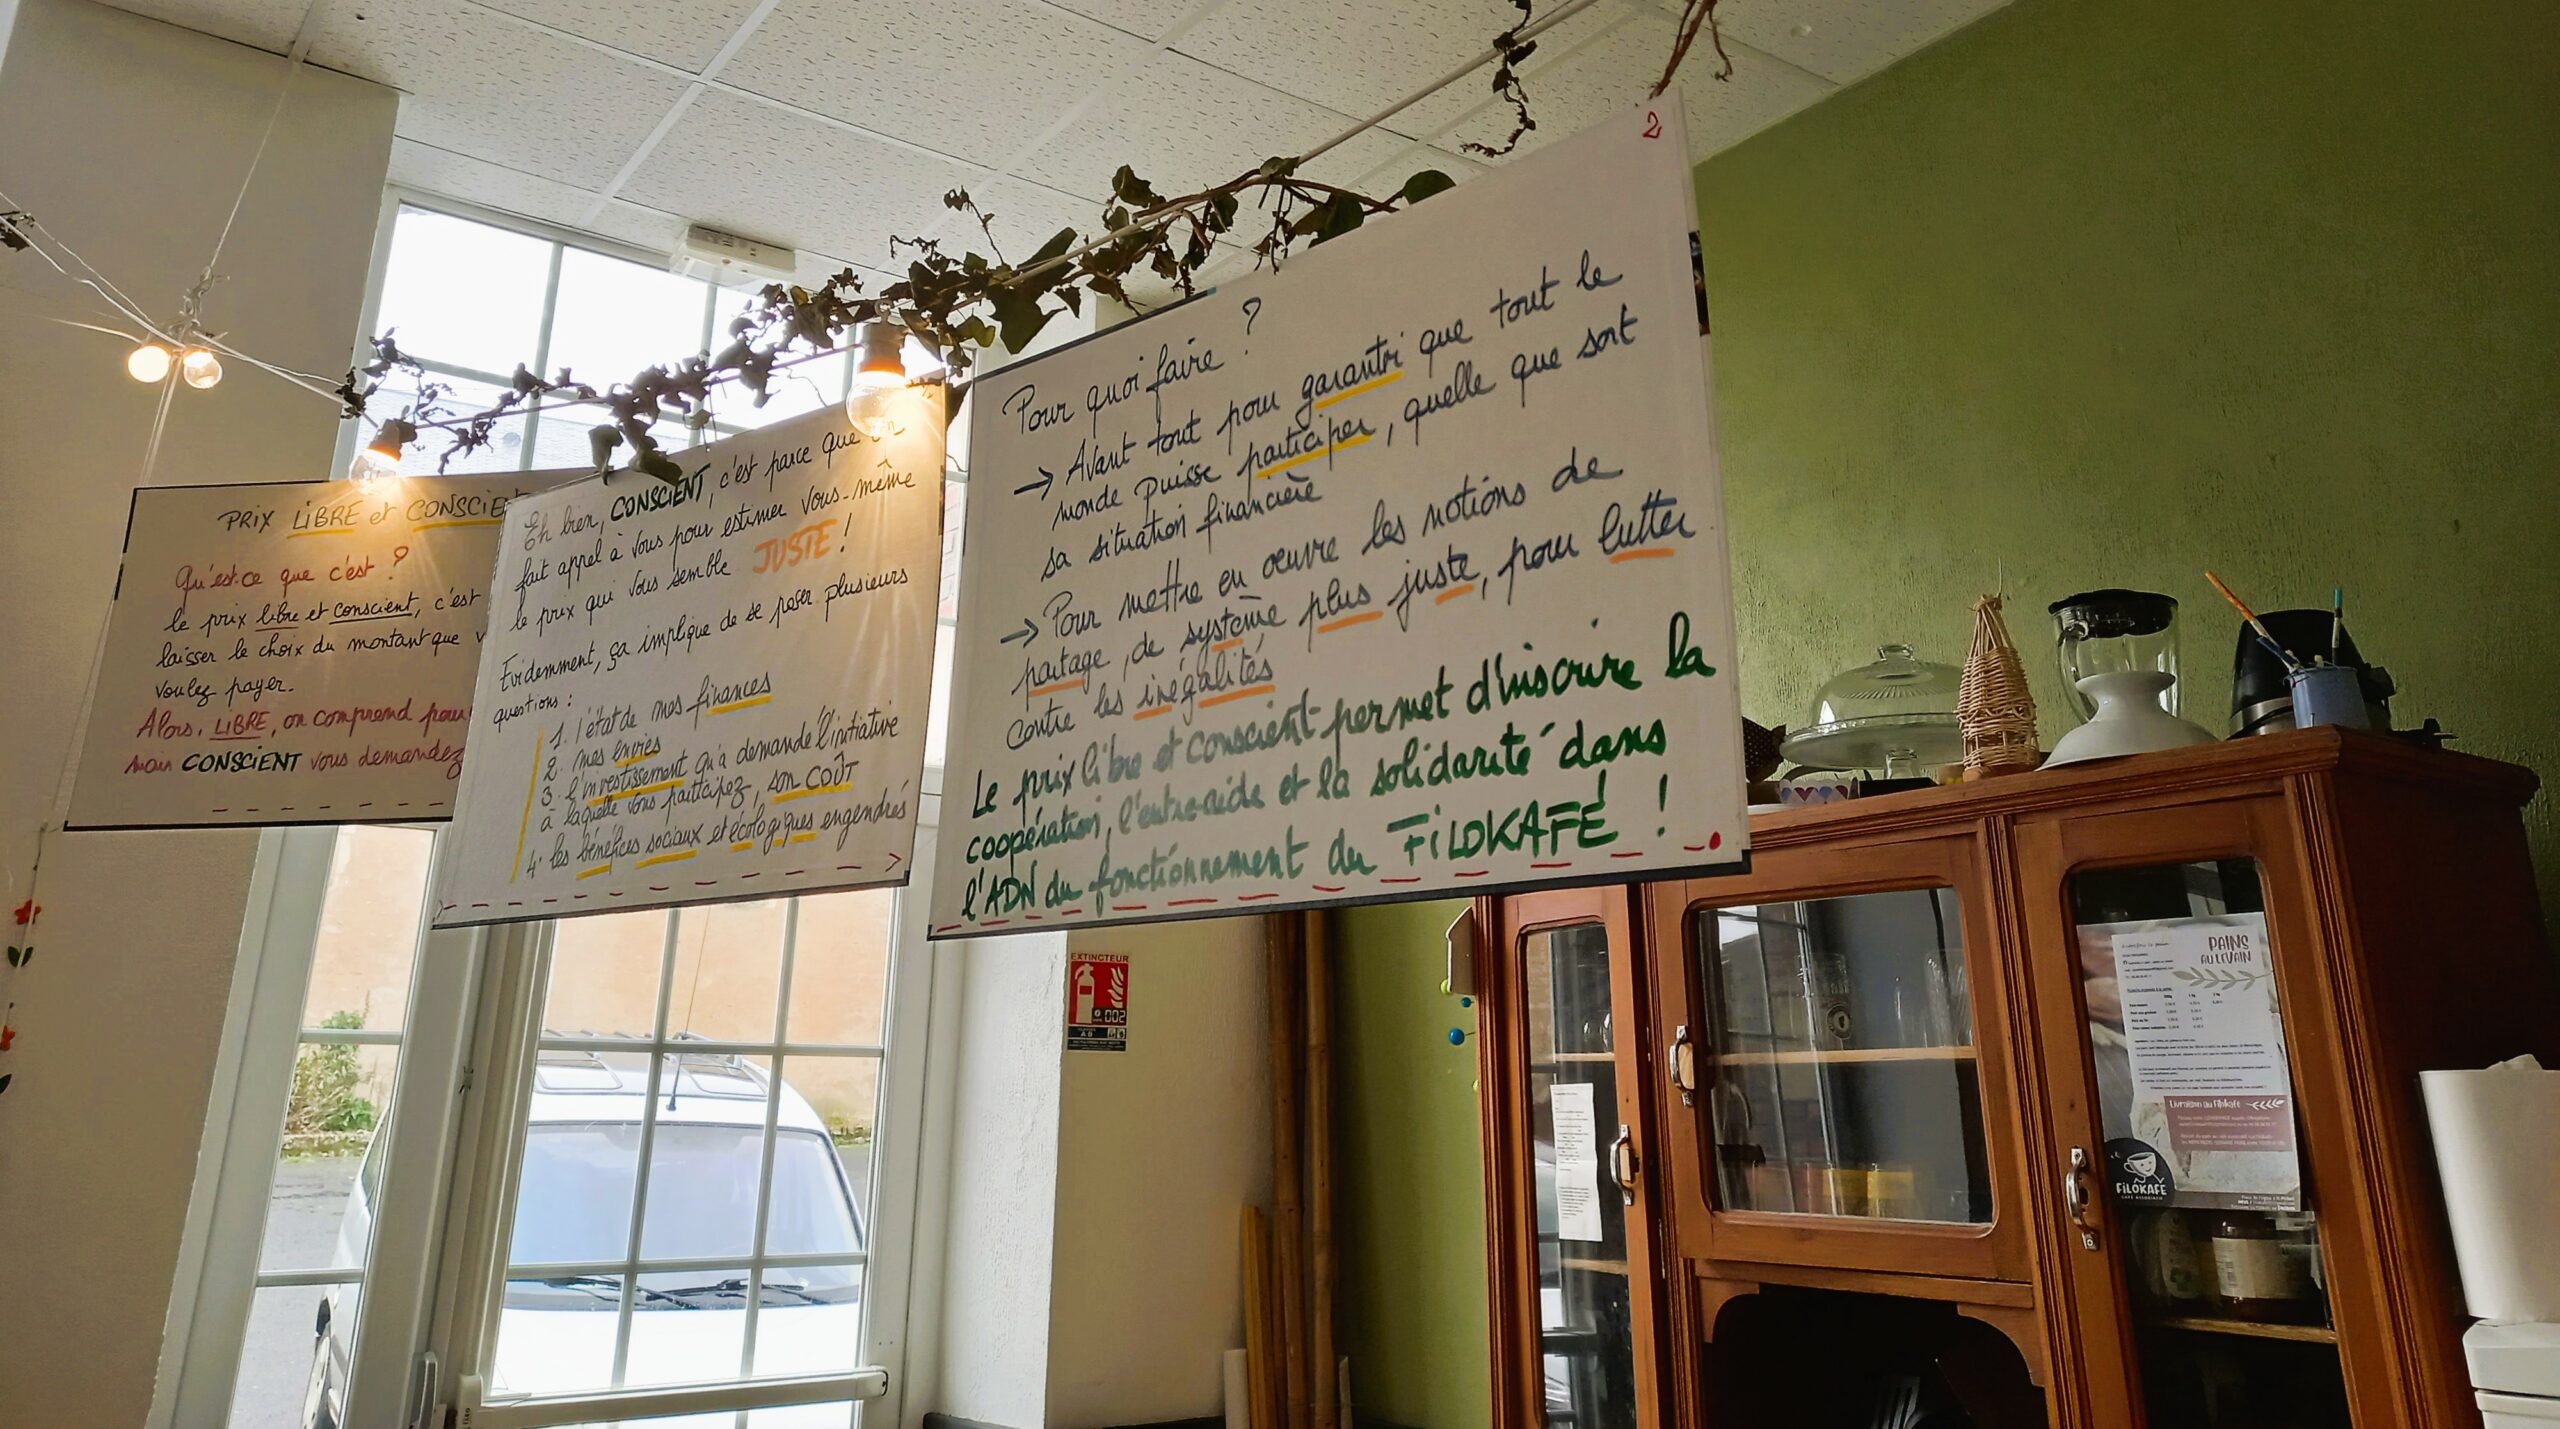 PRIX LIBRE et
Qu'est-ce que c'est ?
le prix libre et conscient, c'est
laisser le choix du montant que
voulez payer.
Alors, LIBRE, on comprend pour
mais CONSCIENT vous demandez
Eh bien, CONSCIENT, c'est parce que
fait appel à vous pour estimer vous-même
le prix qui vous semble JUSTE !
Evidemment, ça implique de se poser plusieurs
questions :
1. l'état de mes finances
2. mes envies
3. l'investissement qu'a demandé l'initiative
à laquelle vous participez, son COÛT
4. les bénéfices sociaux et écologiques engendrés
2
Pour quoi faire ?
→ Avant tout pour garantir que tout le
monde puisse participer, quelle que soit
sa situation financière
→ Pour mettre en œuvre les notions de
partage, de système plus juste, pour lutter
contre les inégalités
Le prix libre et conscient permet d'inscrire la
coopération, l'entre-aide et la solidarité dans
l'ADN du fonctionnement du FiLOKAFÉ !
EXTINCTEUR
002
PAINS
AU LEVAIN
Livraison au Filokafé
FiLOKAFE
CAFÉ ASSOCIATIF